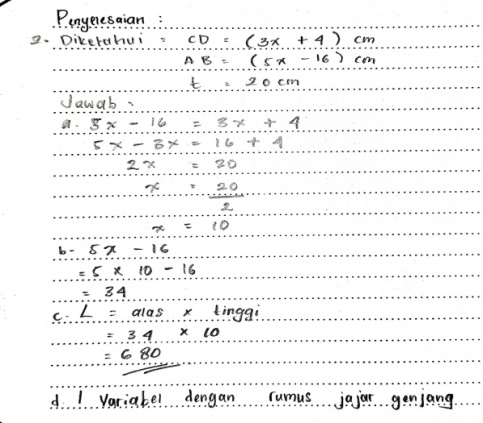 Penyelesaian :
2. Diketahui = CD = (3x + 4) cm
AB = (5x - 16) cm
t = 20 cm
Jawab :
a. 5x - 16 = 3x + 4
5x - 3x = 16 + 4
2x = 20
x = 20
2
x = 10
b- 5x - 16
= 5 x 10 - 16
= 34
c. L = alas x tinggi
= 34 x 10
= 680
d. 1 Variabel dengan rumus jajar genjang